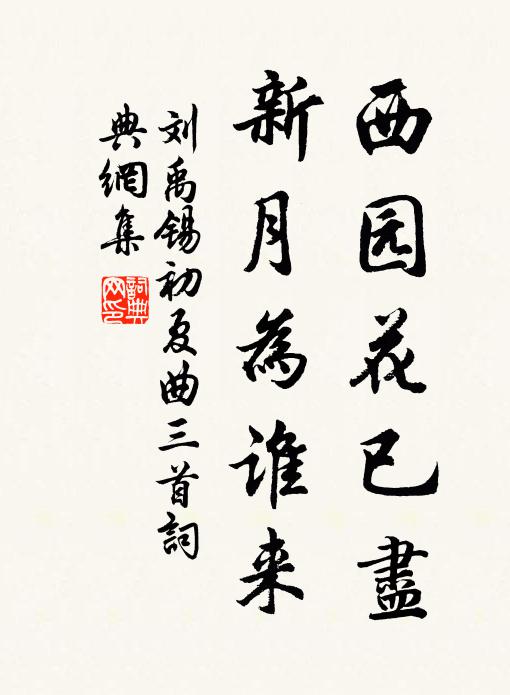 西园花已盡
新月為誰来
刘禹锡初夏曲三首詞
典網集
詞典
网印